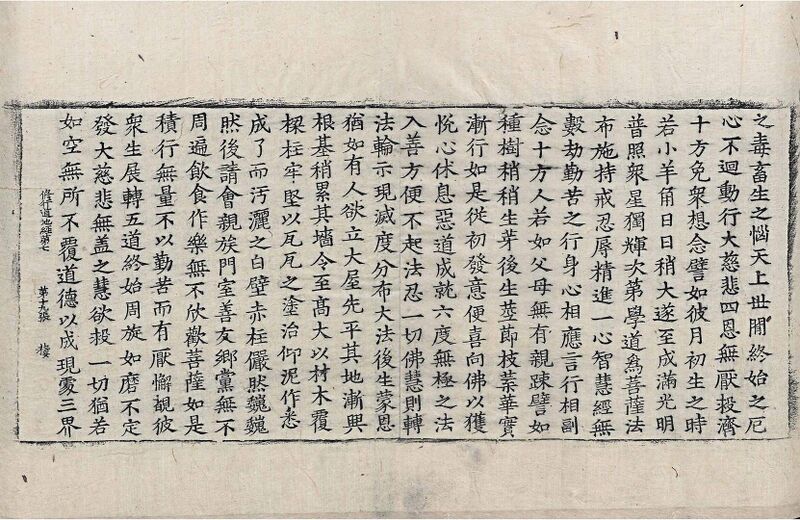 之毒畜生之惱天上世間終始之厄
心不迴動行大慈悲四恩無猒投濟
十方免衆想念譬如彼月初生之時
若小羊角日日稍大遂至成滿光明
普照衆星獨輝次第學道為菩薩法
布施持戒忍辱精進一心智慧經無
數劫勤苦之行身心相應言行相副
念十方人若如父母無有親踈譬如
種樹稍稍生芽後生莖節枝葉華實
漸行如是從初發意便喜向佛以獲
悅心休息惡道成就六度無極之法
入善方便不起法忍一切佛慧則轉
法輪示現滅度分布大法後生蒙恩
猶如有人欲立大屋先平其地漸興
根基稍累其墻令至高大以材木覆
樑柱牢堅以瓦瓦之塗治仰泥作悉
成了而汚灑之白壁赤柱儼然巍巍
然後請會親族門室善友鄉黨無不
周遍飲食作樂無不欣歡菩薩如是
積行無量不以勤苦而有猒懈覩彼
衆生展轉五道終始周旋如磨不定
發大慈悲無蓋之慧欲投一切猶若
修行道地經第七 第十九張 樓
如空無所不覆道德以成現處三界